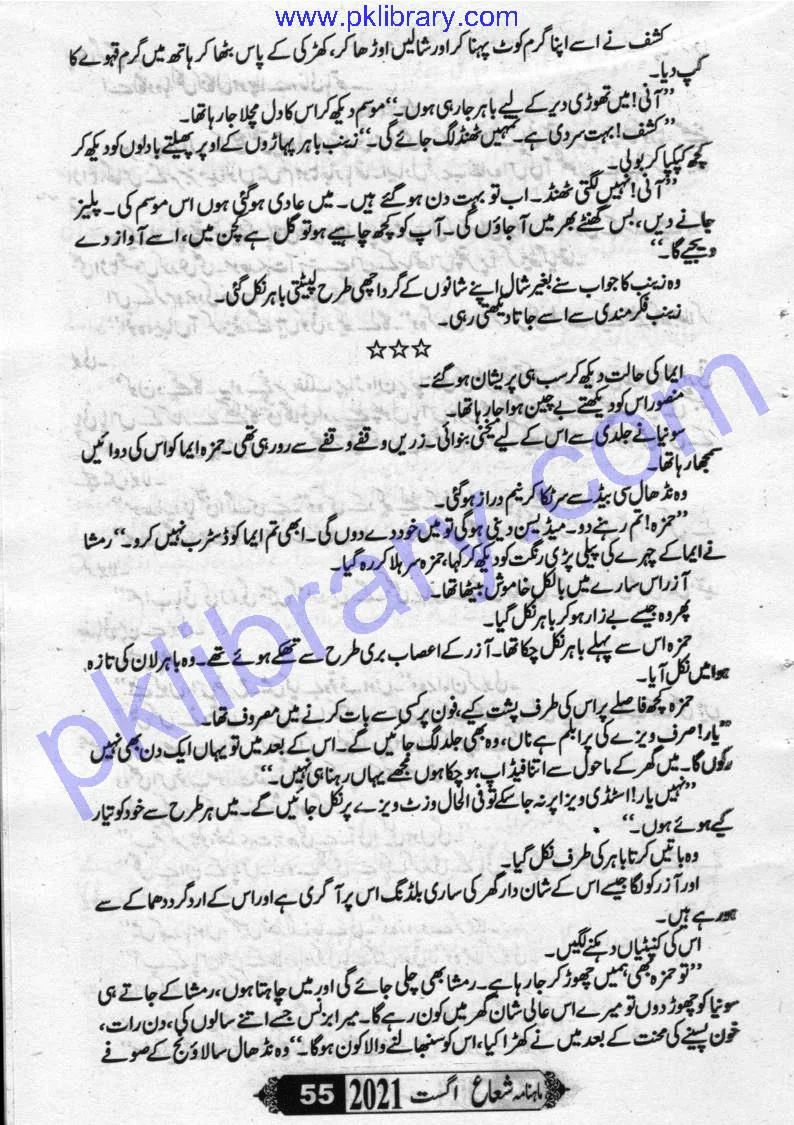 www.pklibrary.com
کشف نے اسے اپنا گرم کوٹ پہنا کر اور شالیں اوڑھا کر، کھڑکی کے پاس بٹھا کر ہاتھ میں گرم قہوے کا
کپ دیا۔
”آنی! میں تھوڑی دیر کے لیے باہر جا رہی ہوں۔“ موسم دیکھ کر اس کا دل مچلا جا رہا تھا۔
”کشف! بہت سردی ہے۔ تمہیں ٹھنڈ لگ جائے گی۔“ زینب باہر پہاڑوں کے اوپر پھیلتے بادلوں کو دیکھ کر
کچھ کپکپا کر بولی۔
”آنی! نہیں لگتی ٹھنڈ۔ اب تو بہت دن ہو گئے ہیں۔ میں عادی ہو گئی ہوں اس موسم کی۔ پلیز
جانے دیں، بس گھنٹے بھر میں آ جاؤں گی۔ آپ کو کچھ چاہیے ہو تو گل ہے کچن میں، اسے آواز دے
دیجیے گا۔“
وہ زینب کا جواب سنے بغیر شال اپنے شانوں کے گرد اچھی طرح لپیٹتی باہر نکل گئی۔
زینب فکر مندی سے اسے جاتا دیکھتی رہی۔
☆☆☆
ایما کی حالت دیکھ کر سب ہی پریشان ہو گئے۔
منصور اس کو دیکھتے بے چین ہوا جا رہا تھا۔
سونیا نے جلدی سے اس کے لیے یخنی بنوائی۔ زریں وقفے وقفے سے رو رہی تھی۔ حمزہ ایما کو اس کی دوائیں
سمجھا رہا تھا۔
وہ نڈھال سی بیڈ سے سر ٹکا کر نیم دراز ہو گئی۔
”حمزہ! تم رہنے دو۔ میڈیسن دینی ہو گی تو میں خود دے دوں گی۔ ابھی تم ایما کو ڈسٹرب نہیں کرو۔“ رمشا
نے ایما کے چہرے کی پیلی پڑی رنگت کو دیکھ کر کہا، حمزہ سر ہلا کر رہ گیا۔
آزر اس سارے میں بالکل خاموش بیٹھا تھا۔
پھر وہ جیسے بے زار ہو کر باہر نکل گیا۔
حمزہ اس سے پہلے باہر نکل چکا تھا۔ آزر کے اعصاب بری طرح سے تھکے ہوئے تھے۔ وہ باہر لان کی تازہ
ہوا میں نکل آیا۔
حمزہ کچھ فاصلے پر اس کی طرف پشت کیے، فون پر کسی سے بات کرنے میں مصروف تھا۔
”یار! صرف ویزے کی پرابلم ہے ناں، وہ بھی جلد لگ جائیں گے۔ اس کے بعد میں تو یہاں ایک دن بھی نہیں
رکوں گا۔ میں گھر کے ماحول سے اتنا فیڈ اپ ہو چکا ہوں مجھے یہاں رہنا ہی نہیں۔“
”نہیں یار! اسٹڈی ویزا پر نہ جا سکے تو فی الحال وزٹ ویزے پر نکل جائیں گے۔ میں ہر طرح سے خود کو تیار
کیے ہوئے ہوں۔“
وہ باتیں کرتا باہر کی طرف نکل گیا۔
اور آزر کو لگا جیسے اس کے شان دار گھر کی ساری بلڈنگ اس پر آ گری ہے اور اس کے ارد گرد دھماکے سے
ہو رہے ہیں۔
اس کی کنپٹیاں دکھنے لگیں۔
”تو حمزہ بھی ہمیں چھوڑ کر جا رہا ہے۔ رمشا بھی چلی جائے گی اور میں چاہتا ہوں، رمشا کے جاتے ہی
سونیا کو چھوڑ دوں تو میرے اس عالی شان گھر میں کون رہے گا۔ میرا بزنس جسے اتنے سالوں کی، دن رات،
خون پسینے کی محنت کے بعد میں نے کھڑا کیا، اس کو سنبھالنے والا کون ہو گا۔“ وہ نڈھال سا لاؤنج کے صوفے
ماہنامہ شعاع اگست 2021 55
pklibrary.com